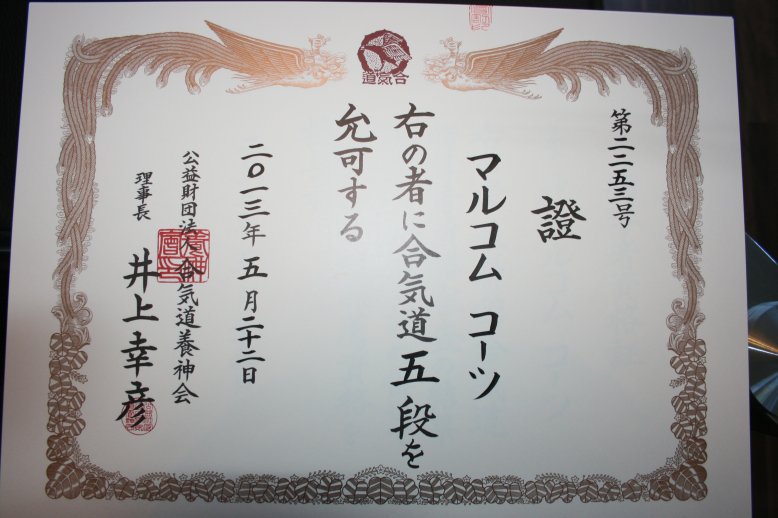 合気道
第二二五三号
證
マルコム コーツ
右の者に合気道五段を
允可する
二〇一三年五月二十二日
公益財団法人合気道養神会
理事長 井上幸彦